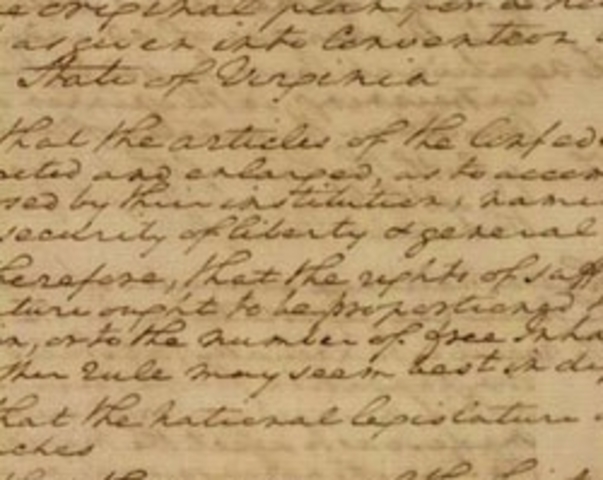 original plan
as given into Convention
State of Virginia
that the articles of the Confed
ected and enlarged, as to accom
sed by their institution; name
security of liberty & general
herefore, that the rights of suff
ture ought to be proportioned
on, or to the number of free Inha
ther rule may seem best in di
that the national legislature
nches